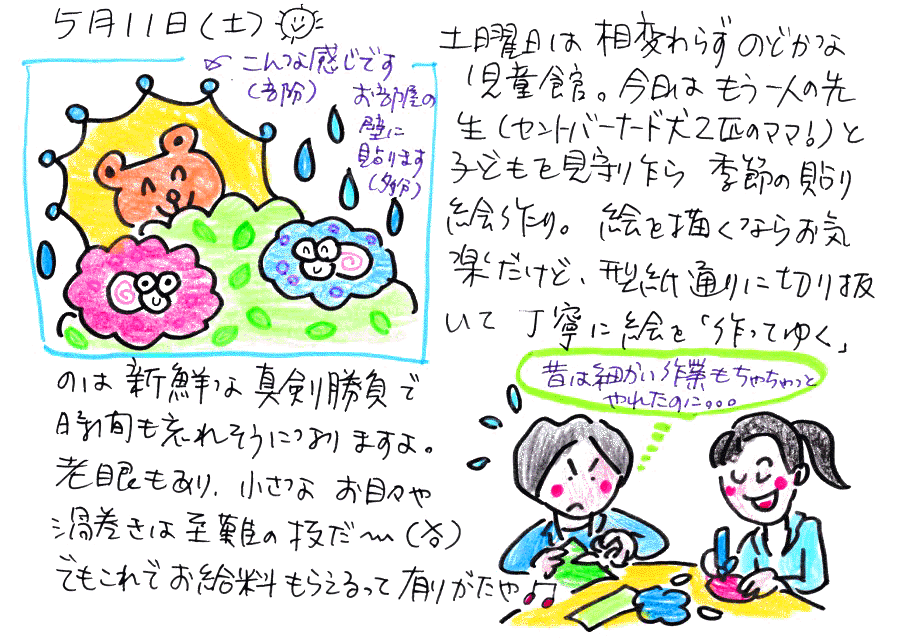 5月11日(土)
こんな感じです
(部分)
お部屋の
壁に
貼ります
(多分)
土曜日は 相変わらず のどかな
児童館。今日は もう一人の先
生(セントバーナード犬2匹のママ!)と
子どもを見守り乍ら 季節の貼り
絵作り。 絵を描くならお気
楽だけど、型紙通りに切り抜
いて 丁寧に絵を「作ってゆく」
のは 新鮮な 真剣勝負で
時間も忘れそうになりますよ。
老眼もあり、小さな お目々や
渦巻きは 至難の技だ〜(笑)
でもこれで お給料もらえるって 有りがたや♫
昔は細かい作業もちゃちゃっと
やれたのに。。。